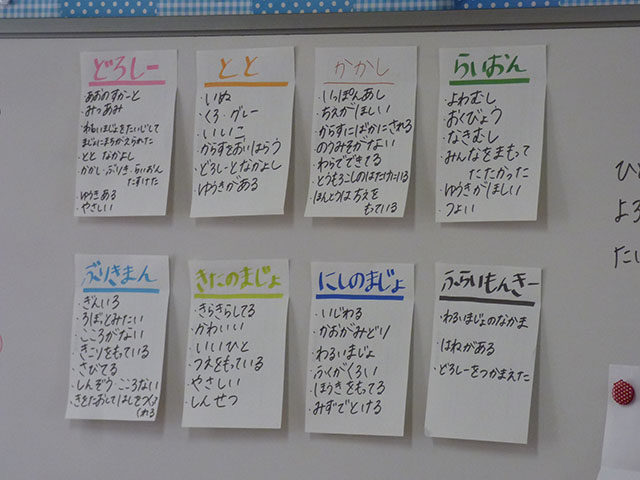 どろしー
・あおのすかーと
・みつあみ
・わるいまじょをたいじして
まじょにまちがえられた
・とと なかよし
・かかし・ぶりき・らいおん
たすけた
・ゆうきある
・やさしい
とと
・いぬ
・くろ・グレー
・いいこ
・からすをおいはらう
・どろしーとなかよし
・ゆうきがある
かかし
・いっぽんあし
・ちえがほしい
・からすにばかにされる
・のうみそがない
・わらでできてる
・とうもろこしのはたけにいる
・ほんとうはちえを
もっている
らいおん
・よわむし
・おくびょう
・なきむし
・みんなをまもって
たたかった
・ゆうきがほしい
・つよい
ぶりきまん
・ぎんいろ
・ろぼっとみたい
・こころがない
・きこりをもっている
・さびてる
・しんぞう こころない
・きをたおしてはしをつくって
くれる
きたのまじょ
・きらきらしてる
・かわいい
・いいひと
・つえをもっている
・やさしい
・しんせつ
にしのまじょ
・いじわる
・かおがみどり
・わるいまじょ
・ふくがくろい
・ほうきをもってる
・みずでとける
ふらいもんきー
・わるいまじょのなかま
・はねがある
・どろしーをつかまえた